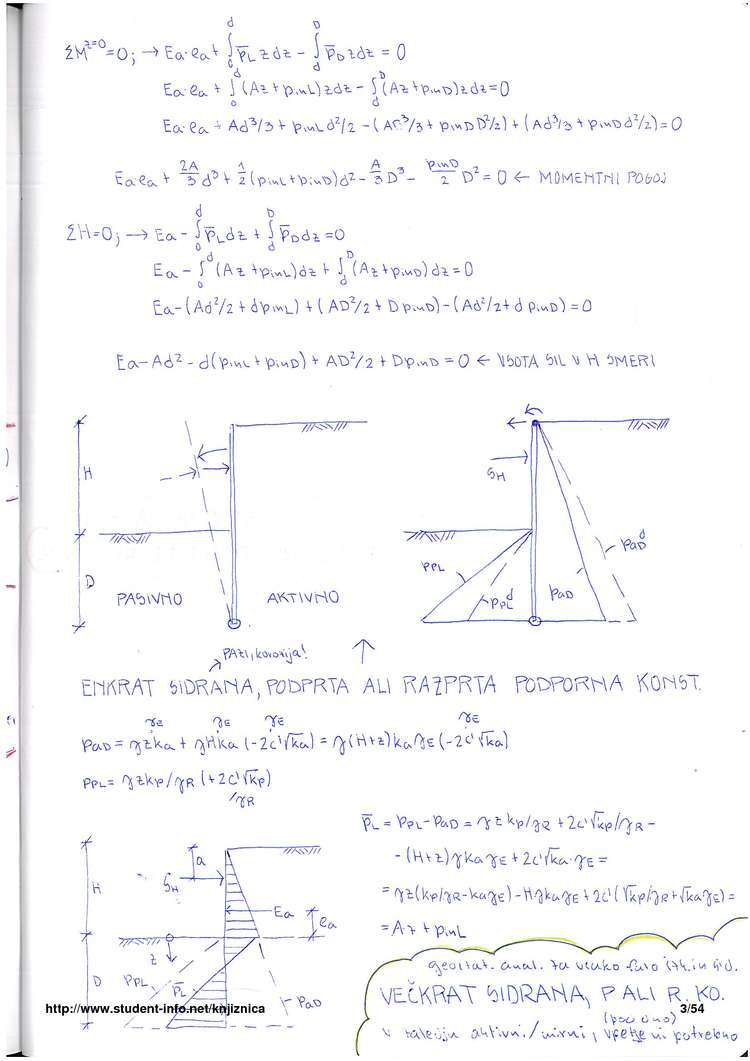 ΣM^{z=0}=0; → Ea·ea + ∫₀^d p̄L z dz − ∫_d^D p̄D z dz = 0
Ea·ea + ∫₀^d (Az + pinL) z dz − ∫_d^D (Az + pinD) z dz = 0
Ea·ea + Ad³/3 + pinL d²/2 − (AD³/3 + pinD D²/2) + (Ad³/3 + pinD d²/2) = 0
Ea·ea + 2A/3 d³ + 1/2 (pinL + pinD) d² − A/3 D³ − pinD/2 D² = 0 ← MOMENTNI POGOJ
ΣH=0; → Ea − ∫₀^d p̄L dz + ∫_d^D p̄D dz = 0
Ea − ∫₀^d (Az + pinL) dz + ∫_d^D (Az + pinD) dz = 0
Ea − (Ad²/2 + d pinL) + (AD²/2 + D pinD) − (Ad²/2 + d pinD) = 0
Ea − Ad² − d(pinL + pinD) + AD²/2 + D pinD = 0 ← VSOTA SIL V H SMERI
H
D
PASIVNO
AKTIVNO
SH
pPL
pPL^d
paD
paD^d
PAZI, korozija!
ENKRAT SIDRANA, PODPRTA ALI RAZPRTA PODPORNA KONST.
γE γE γE γE
paD = γzka + γHka (−2c'√ka) = γ(H+z)kaγE (−2c'√ka)
pPL = γzkp/γR (+2c'√kp)
/γR
H
D
a
SH
Ea
ea
z
pPL
p̄L
paD
p̄L = pPL − paD = γzkp/γR + 2c'√kp/γR −
− (H+z)γkaγE + 2c'√ka·γE =
= γz(kp/γR − kaγE) − HγkaγE + 2c'(√kp/γR + √kaγE) =
= Az + pinL
geostat. anal. za vsako fazo izk. in sid.
VEČKRAT SIDRANA, P ALI R. KO.
(podobno)
v zaledju aktivni/mirni, vpetje ni potrebno
http://www.student-info.net/knjiznica
3/54